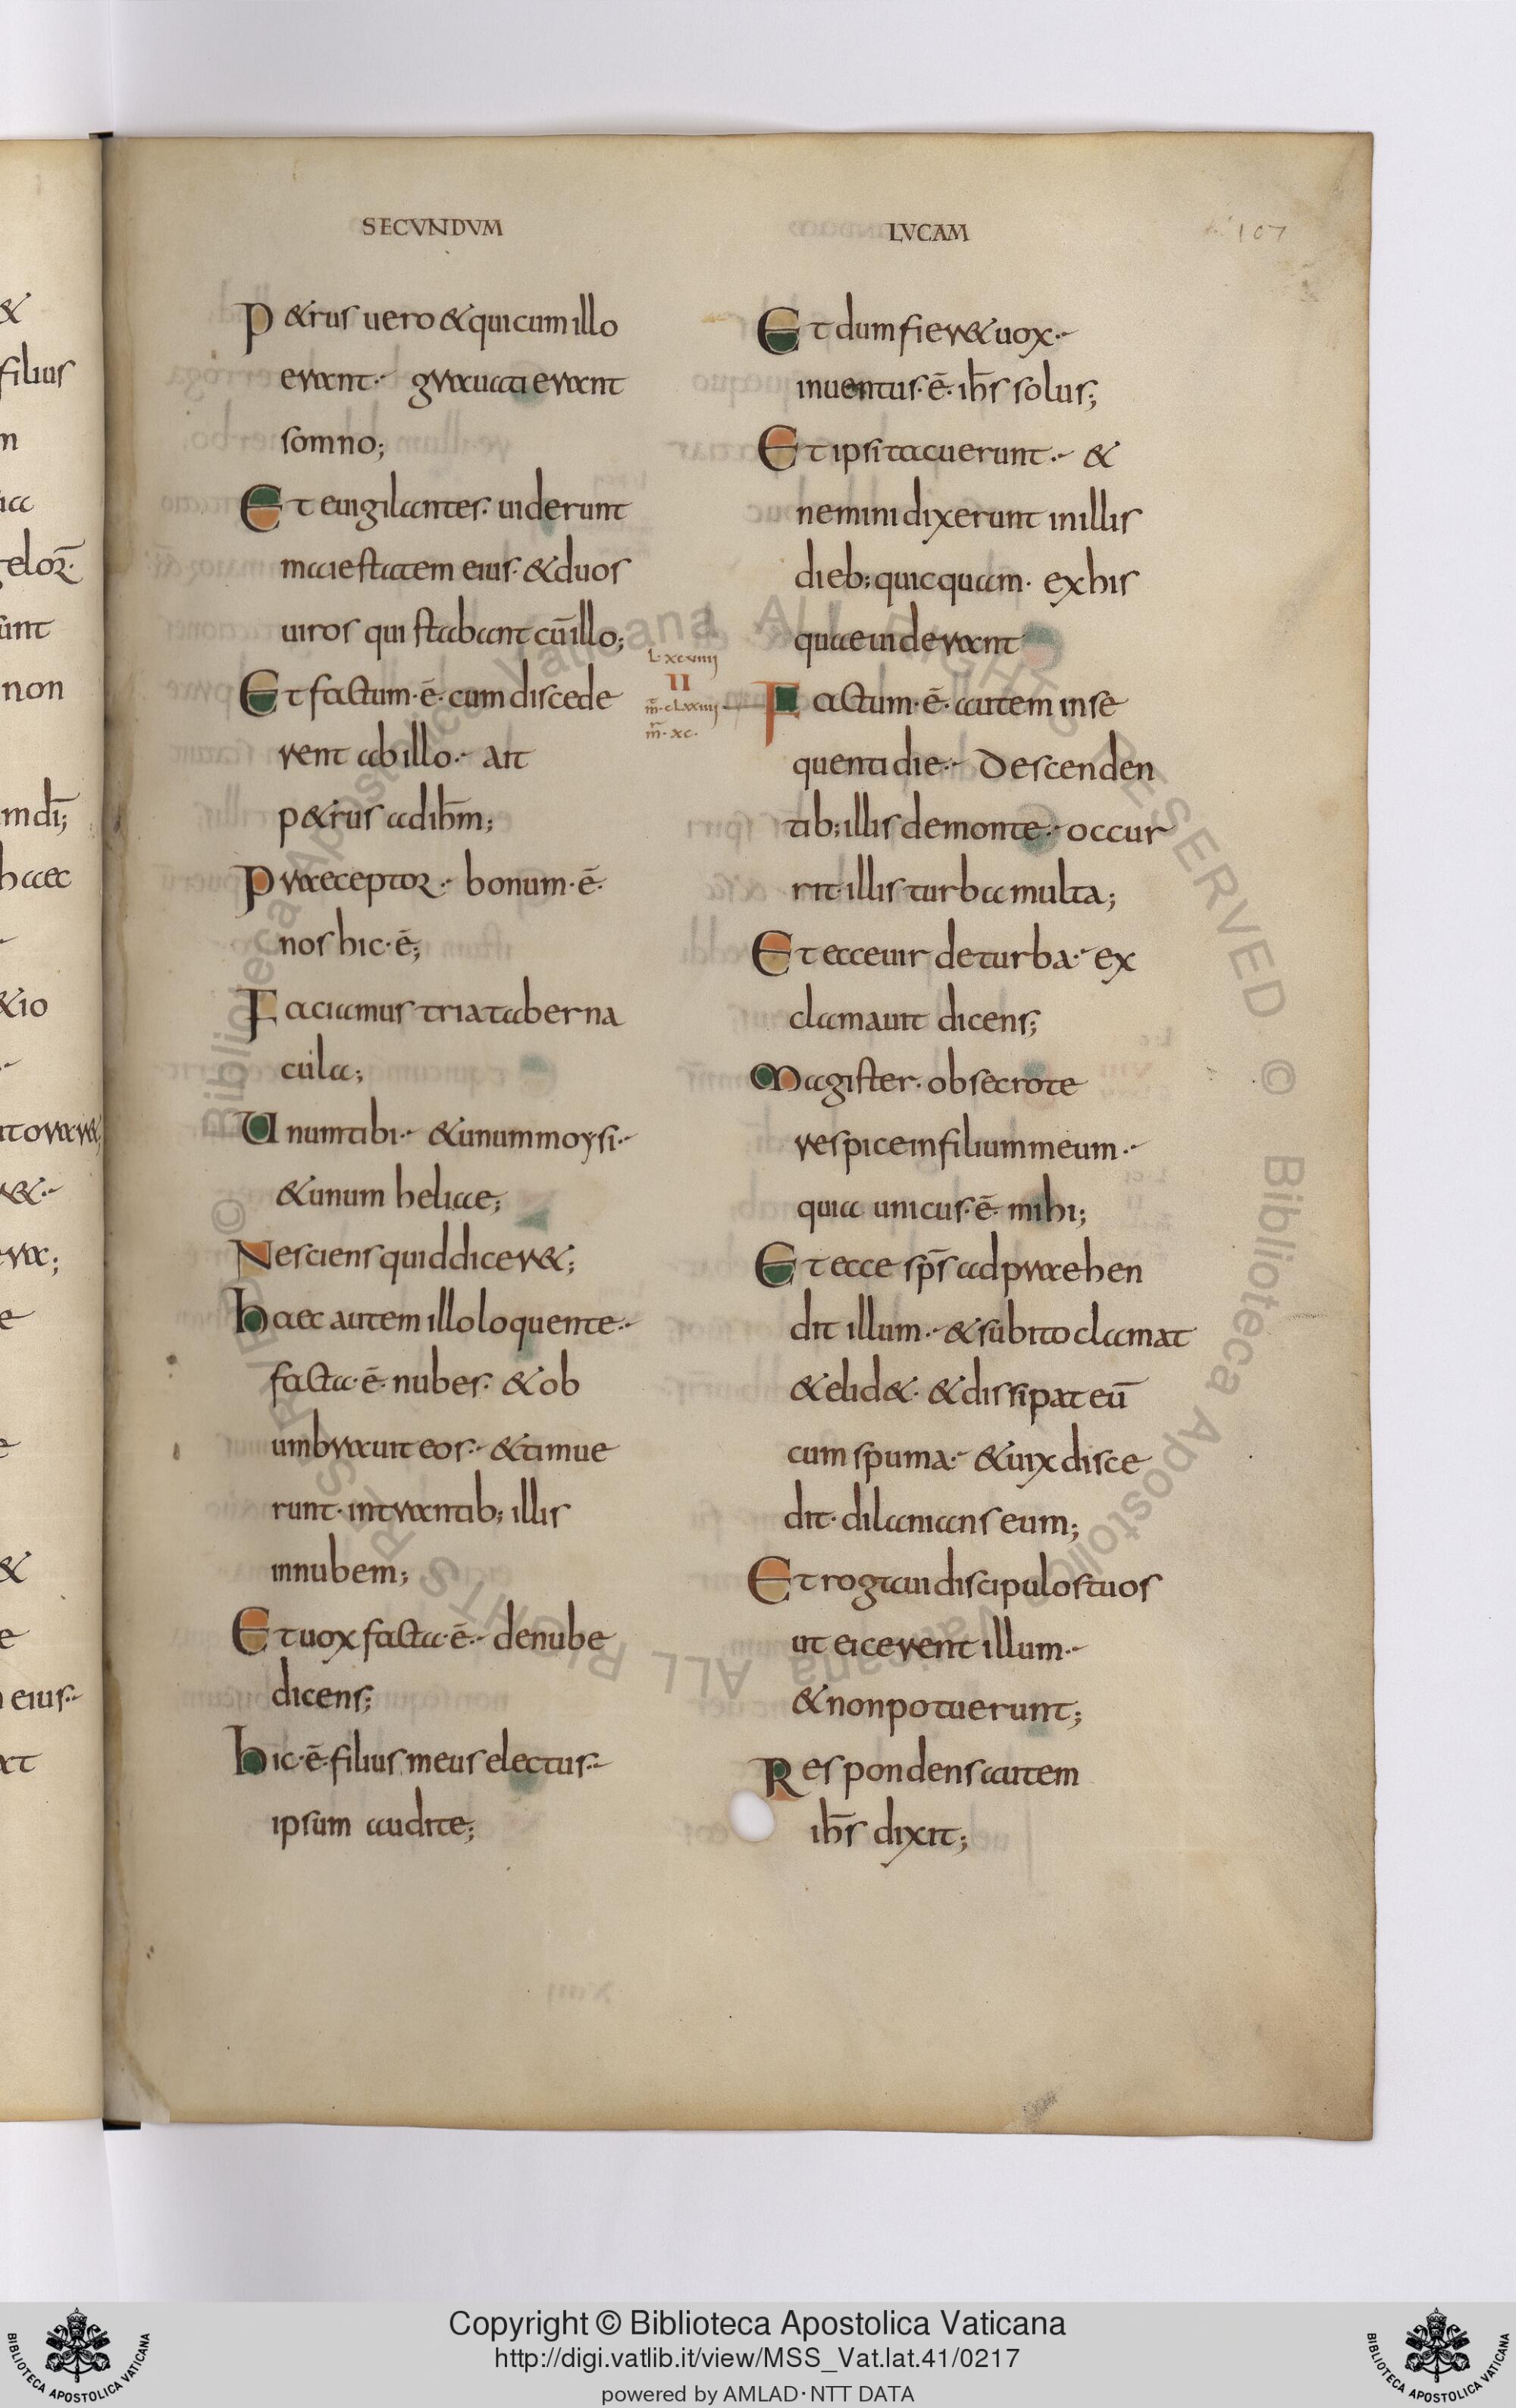 SECVNDVM
LVCAM
107
P&rus uero &qui cum illo
erant· grauati erant
somno;
Et euigilantes· uiderunt
maiestatem eius· &duos
uiros qui stabant cū illo;
Et factum·ē· cum discede
rent ab illo· ait
p&rus ad ih̄m;
Praeceptor· bonum·ē·
nos hic·ē;
Faciamus tria taberna
cula;
Unum tibi· &unum moysi·
&unum heliae;
Nesciens quid dicer&;
Haec autem illo loquente·
facta·ē· nubes· &ob
umbrauit eos· &timue
runt· intrantib; illis
innubem;
Et uox facta·ē· denube
dicens;
Hic·ē· filius meus electus·
ipsum audite;
L·xcviiii
II
m̄·cLxxiiii
m̄·xc·
Et dum fier& uox·
inuentus·ē· ih̄s solus;
Et ipsi tacuerunt· &
nemini dixerunt inillis
dieb; quicquam· exhis
quae uiderant
Factum·ē· autem inse
quenti die· Descenden
tib; illis demonte· occur
rit illis turba multa;
Et ecce uir deturba· ex
clamauit dicens;
Magister· obsecro te
respice in filium meum·
quia unicus·ē· mihi;
Et ecce sp̄s adpraehen
dit illum· &subito clamat
&elid&· &dissipat eū
cum spuma· &uix disce
dit· dilanians eum;
Et rogaui discipulos tuos
ut eicerent illum·
&non potuerunt;
Respondens autem
ih̄s dixit;
&
filius
m
elor̄·
unt
non
m dī;
haec
&io
e
&
e
eius·
Copyright © Biblioteca Apostolica Vaticana
http://digi.vatlib.it/view/MSS_Vat.lat.41/0217
powered by AMLAD·NTT DATA
BIBLIOTECA APOSTOLICA VATICANA
BIBLIOTECA APOSTOLICA VATICANA
© Biblioteca Apostolica Vaticana ALL RIGHTS RESERVED © Biblioteca Apostolica Vaticana ALL RIGHTS RESERVED